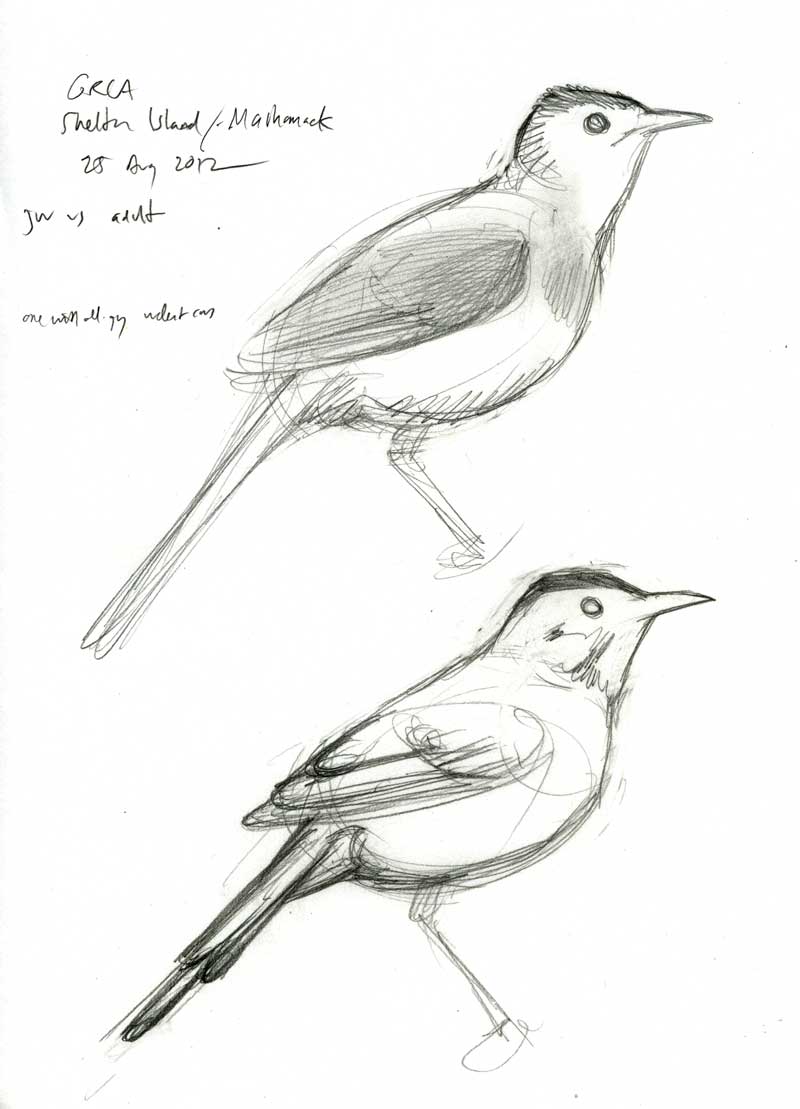 GRCA
Shelter Island / Mashomack
28 Aug 2012
juv vs adult
one with all gry undert cov